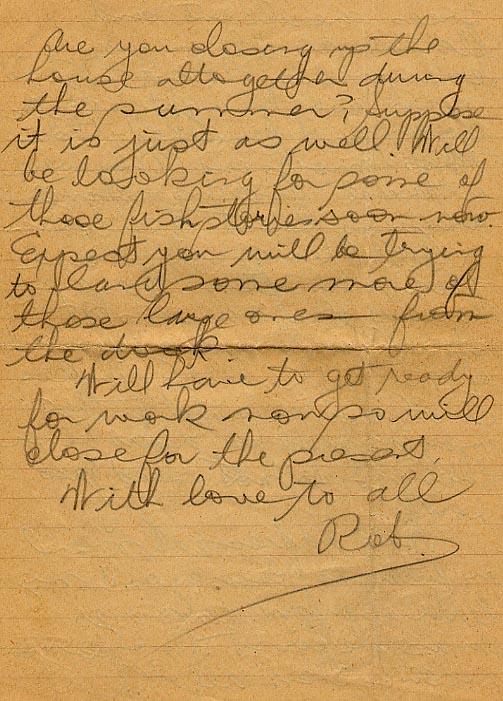 Are you closing up the
house altogether during
the summer? Suppose
it is just as well. Will
be looking for some of
those fish stories soon now.
Expect you will be trying
to land some more of
those large ones from
the dock.
Will have to get ready
for work now so will
close for the present.
With love to all
Rob.